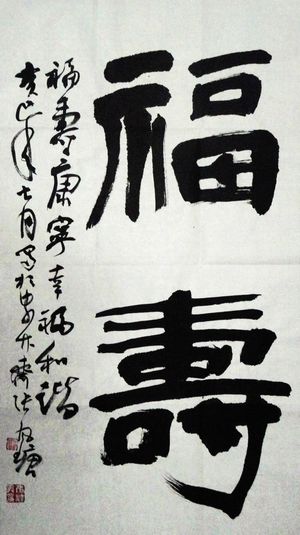 福壽
福壽康寧幸福和諧
年七月写於